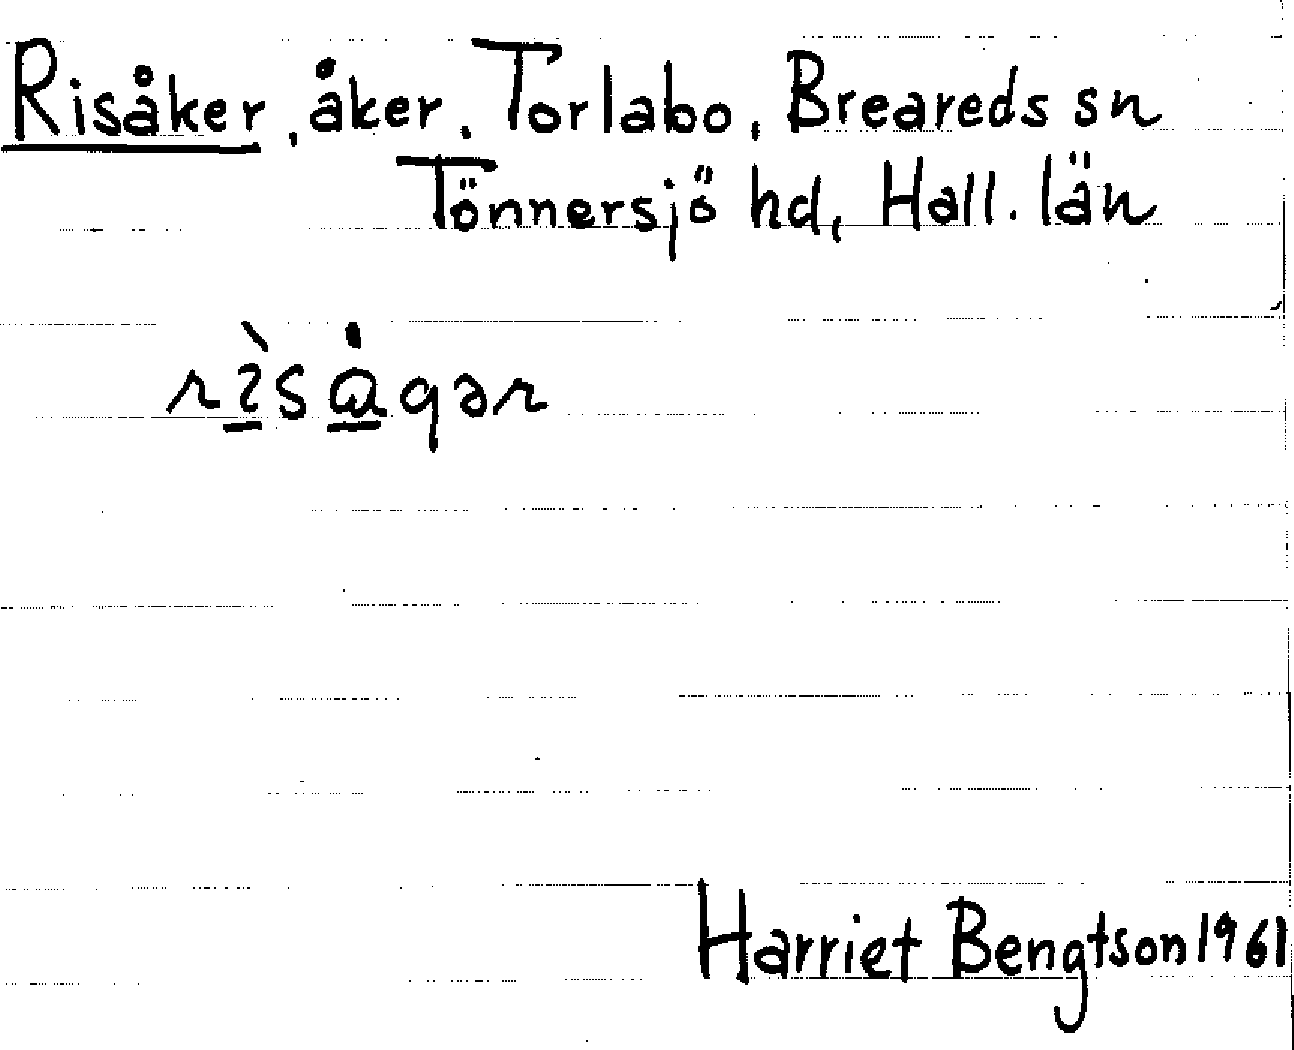 Risåker, åker. Torlabo, Breareds sn
Tönnersjö hd, Hall. län
rìsågər
Harriet Bengtson 1961